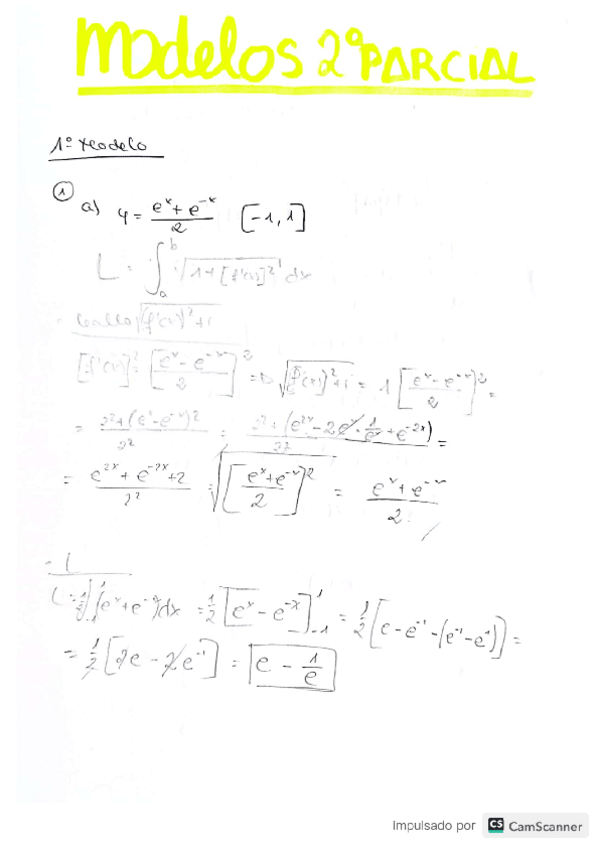 Modelos 2º PARCIAL
1º Modelo
① a) y = (e^x + e^-x)/2 [-1, 1]
L = ∫_a^b √(1+[f'(x)]²) dx
- Calculo √(f'(x))²+1
[f'(x)]² = [(e^x - e^-x)/2]² => √[f'(x)]²+1 = 1 [(e^x - e^-x)/2]² =
= (2²+(e^x - e^-x)²)/2² = (2²+(e^2x - 2e^x · 1/e^x + e^-2x))/2² =
= (e^2x + e^-2x + 2)/2² = √[(e^x + e^-x)/2]² = (e^x + e^-x)/2
- L
L = 1/2 ∫_-1^1 (e^x + e^-x)dx = 1/2 [e^x - e^-x]_-1^1 = 1/2 [e - e^-1 - (e^-1 - e^1)] =
= 1/2 [2e - 2e^-1] = e - 1/e
Impulsado por CS CamScanner